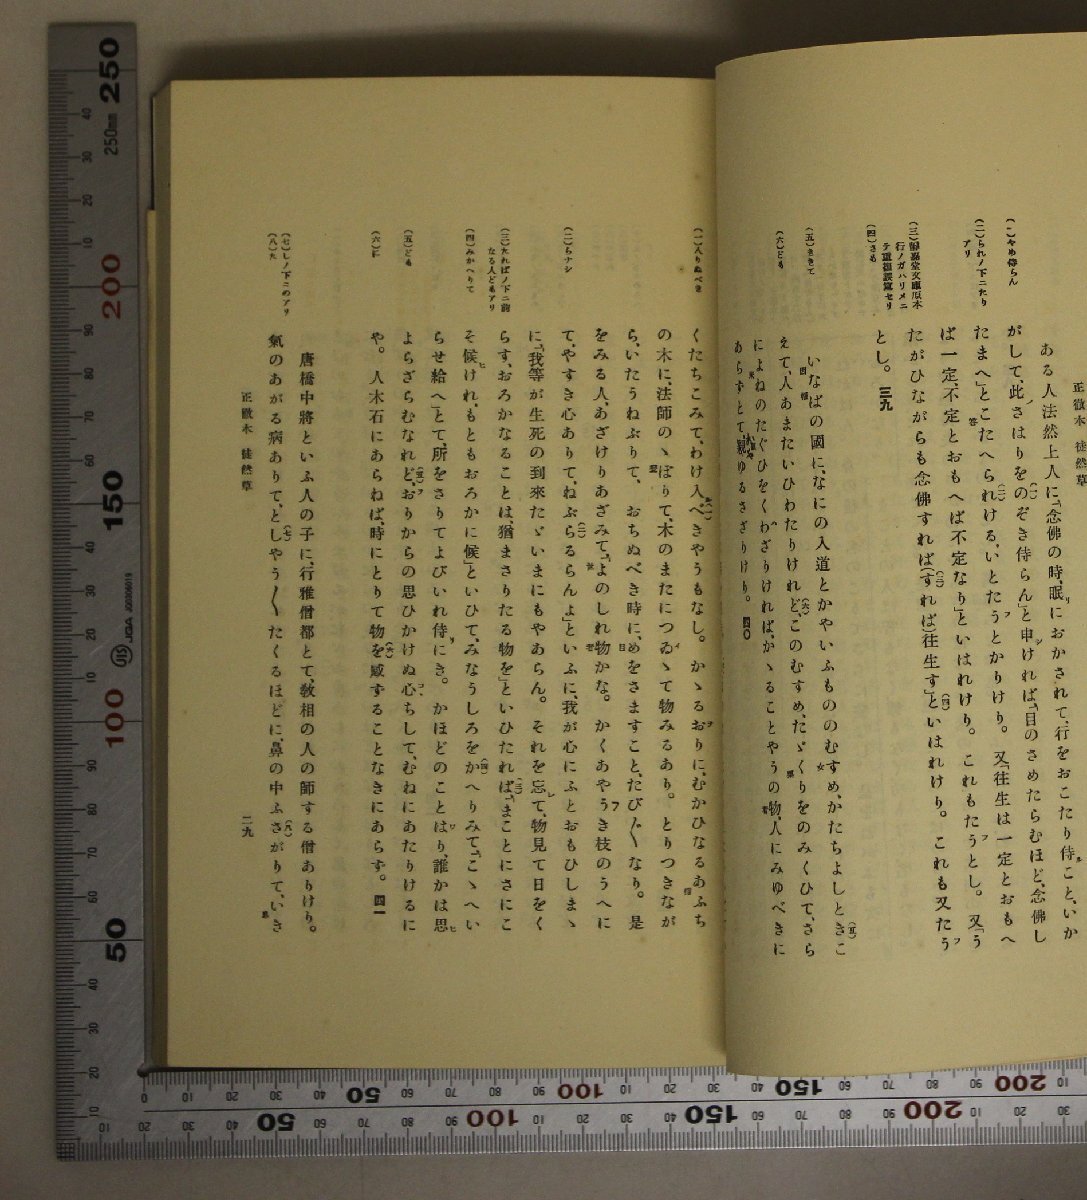 正徹本 徒然草
ある人法然上人に、「念佛の時、眠におかされて、行をおこたり侍こと、いか
がして、此さはりをのぞき侍らん」と申ければ、「目のさめたらむほど、念佛し
たまへ」とこたへられける、いとたうとかりけり。又、「往生は一定とおもへ
ば一定、不定とおもへば不定なり」といはれけり。これもたうとし。又「う
たがひながらも念佛すれば(すれば)往生す」といはれけり。これも又たう
とし。三九
いなばの國に、なにの入道とかやいふもののむすめ、かたちよしときこ
えて、人あまたいひわたりけれど、このむすめ、たゞくりをのみくひて、さら
によねのたぐひをくわざりければ、かゝることやうの物、人にみゆべきに
あらずとて、親ゆるさざりけり。四〇
(一)やめ侍らん
(二)られノ下ニたり
アリ
(三)靜嘉堂文庫原本
行ノガハリメニ
テ重複誤寫セリ
(四)さも
(五)ききて
(六)ども
くたちこみて、わけ入べきやうもなし。かゝるおりに、むかひなるあふち
の木に、法師のゝぼりて木のまたについゐて物みるあり。とりつきなが
ら、いたうねぶりて、おちぬべき時に、めをさますこと、たび〳〵なり。是
をみる人、あざけりあざみて、「よのしれ物かな。かくあやうき枝のうへに
て、やすき心ありて、ねぶらるらんよ」といふに、我が心にふとおもひしまゝ
に、「我等が生死の到來たゞいまにもやあらん。それを忘て、物見て日をく
らす、おろかなることは、猶まさりたる物を」といひたれば、「まことにさにこ
そ候けれ、もともおろかに候」といひて、みなうしろをかへりみて、「こゝへい
らせ給へ」とて、所をさりてよびいれ侍にき。かほどのことはり、誰かは思
よらざらむなれど、おりからの思ひかけぬ心ちして、むねにあたりけるに
や。人木石にあらねば、時にとりて物を感ずることなきにあらず。四一
唐橋中將といふ人の子に、行雅僧都とて、敎相の人の師する僧ありけり。
氣のあがる病ありて、としやう〳〵たくるほどに、鼻の中ふさがりて、いき
(一)入りぬべき
(二)らナシ
(三)たればノ下ニ前
なる人どもアリ
(四)みかへりて
(五)ども
(六)に
(七)しノ下ニのアリ
(八)た
正徹本 徒然草
二九